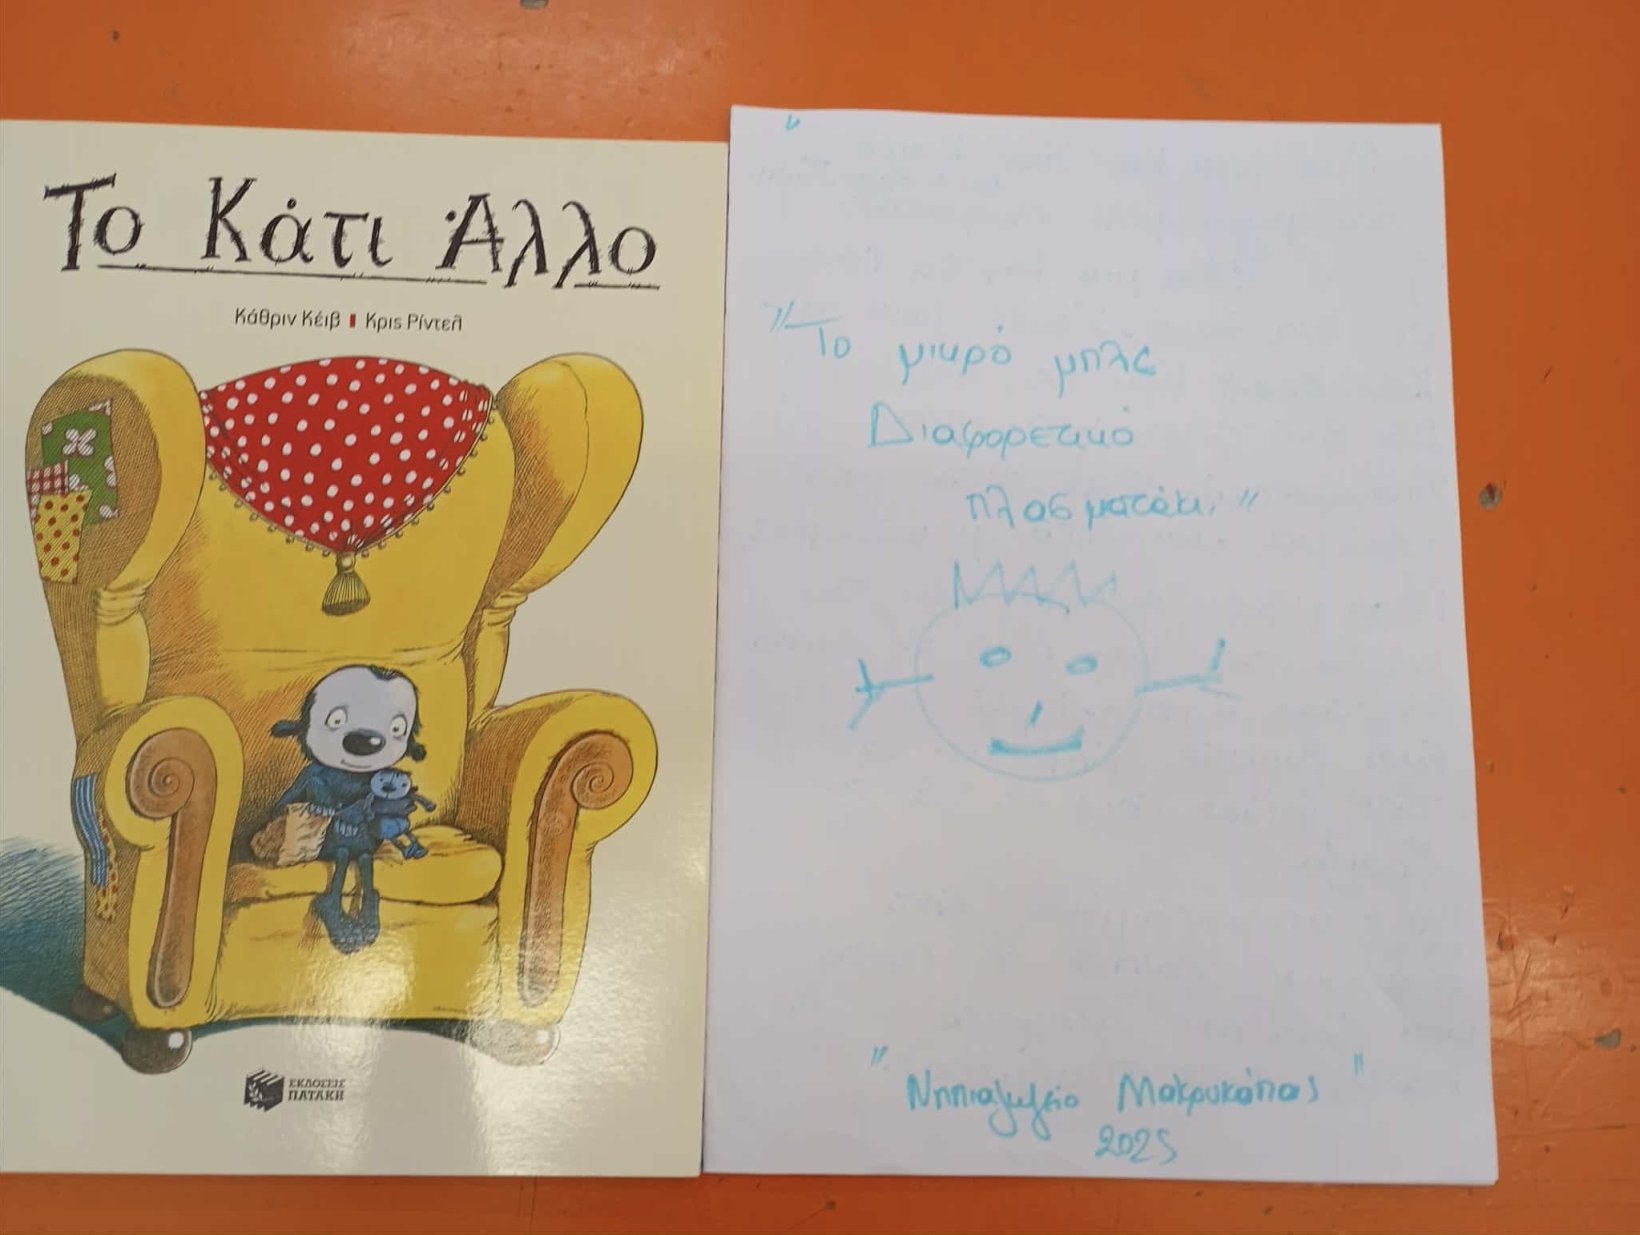 Το Κάτι Άλλο
Κάθριν Κέιβ Κρις Ρίντελ
ΕΚΔΟΣΕΙΣ
ΠΑΤΑΚΗ
"Το μικρό μπλε
Διαφορετικό
πλασματάκι"
"Νηπιαγωγείο Μακρυκάπας"
2025